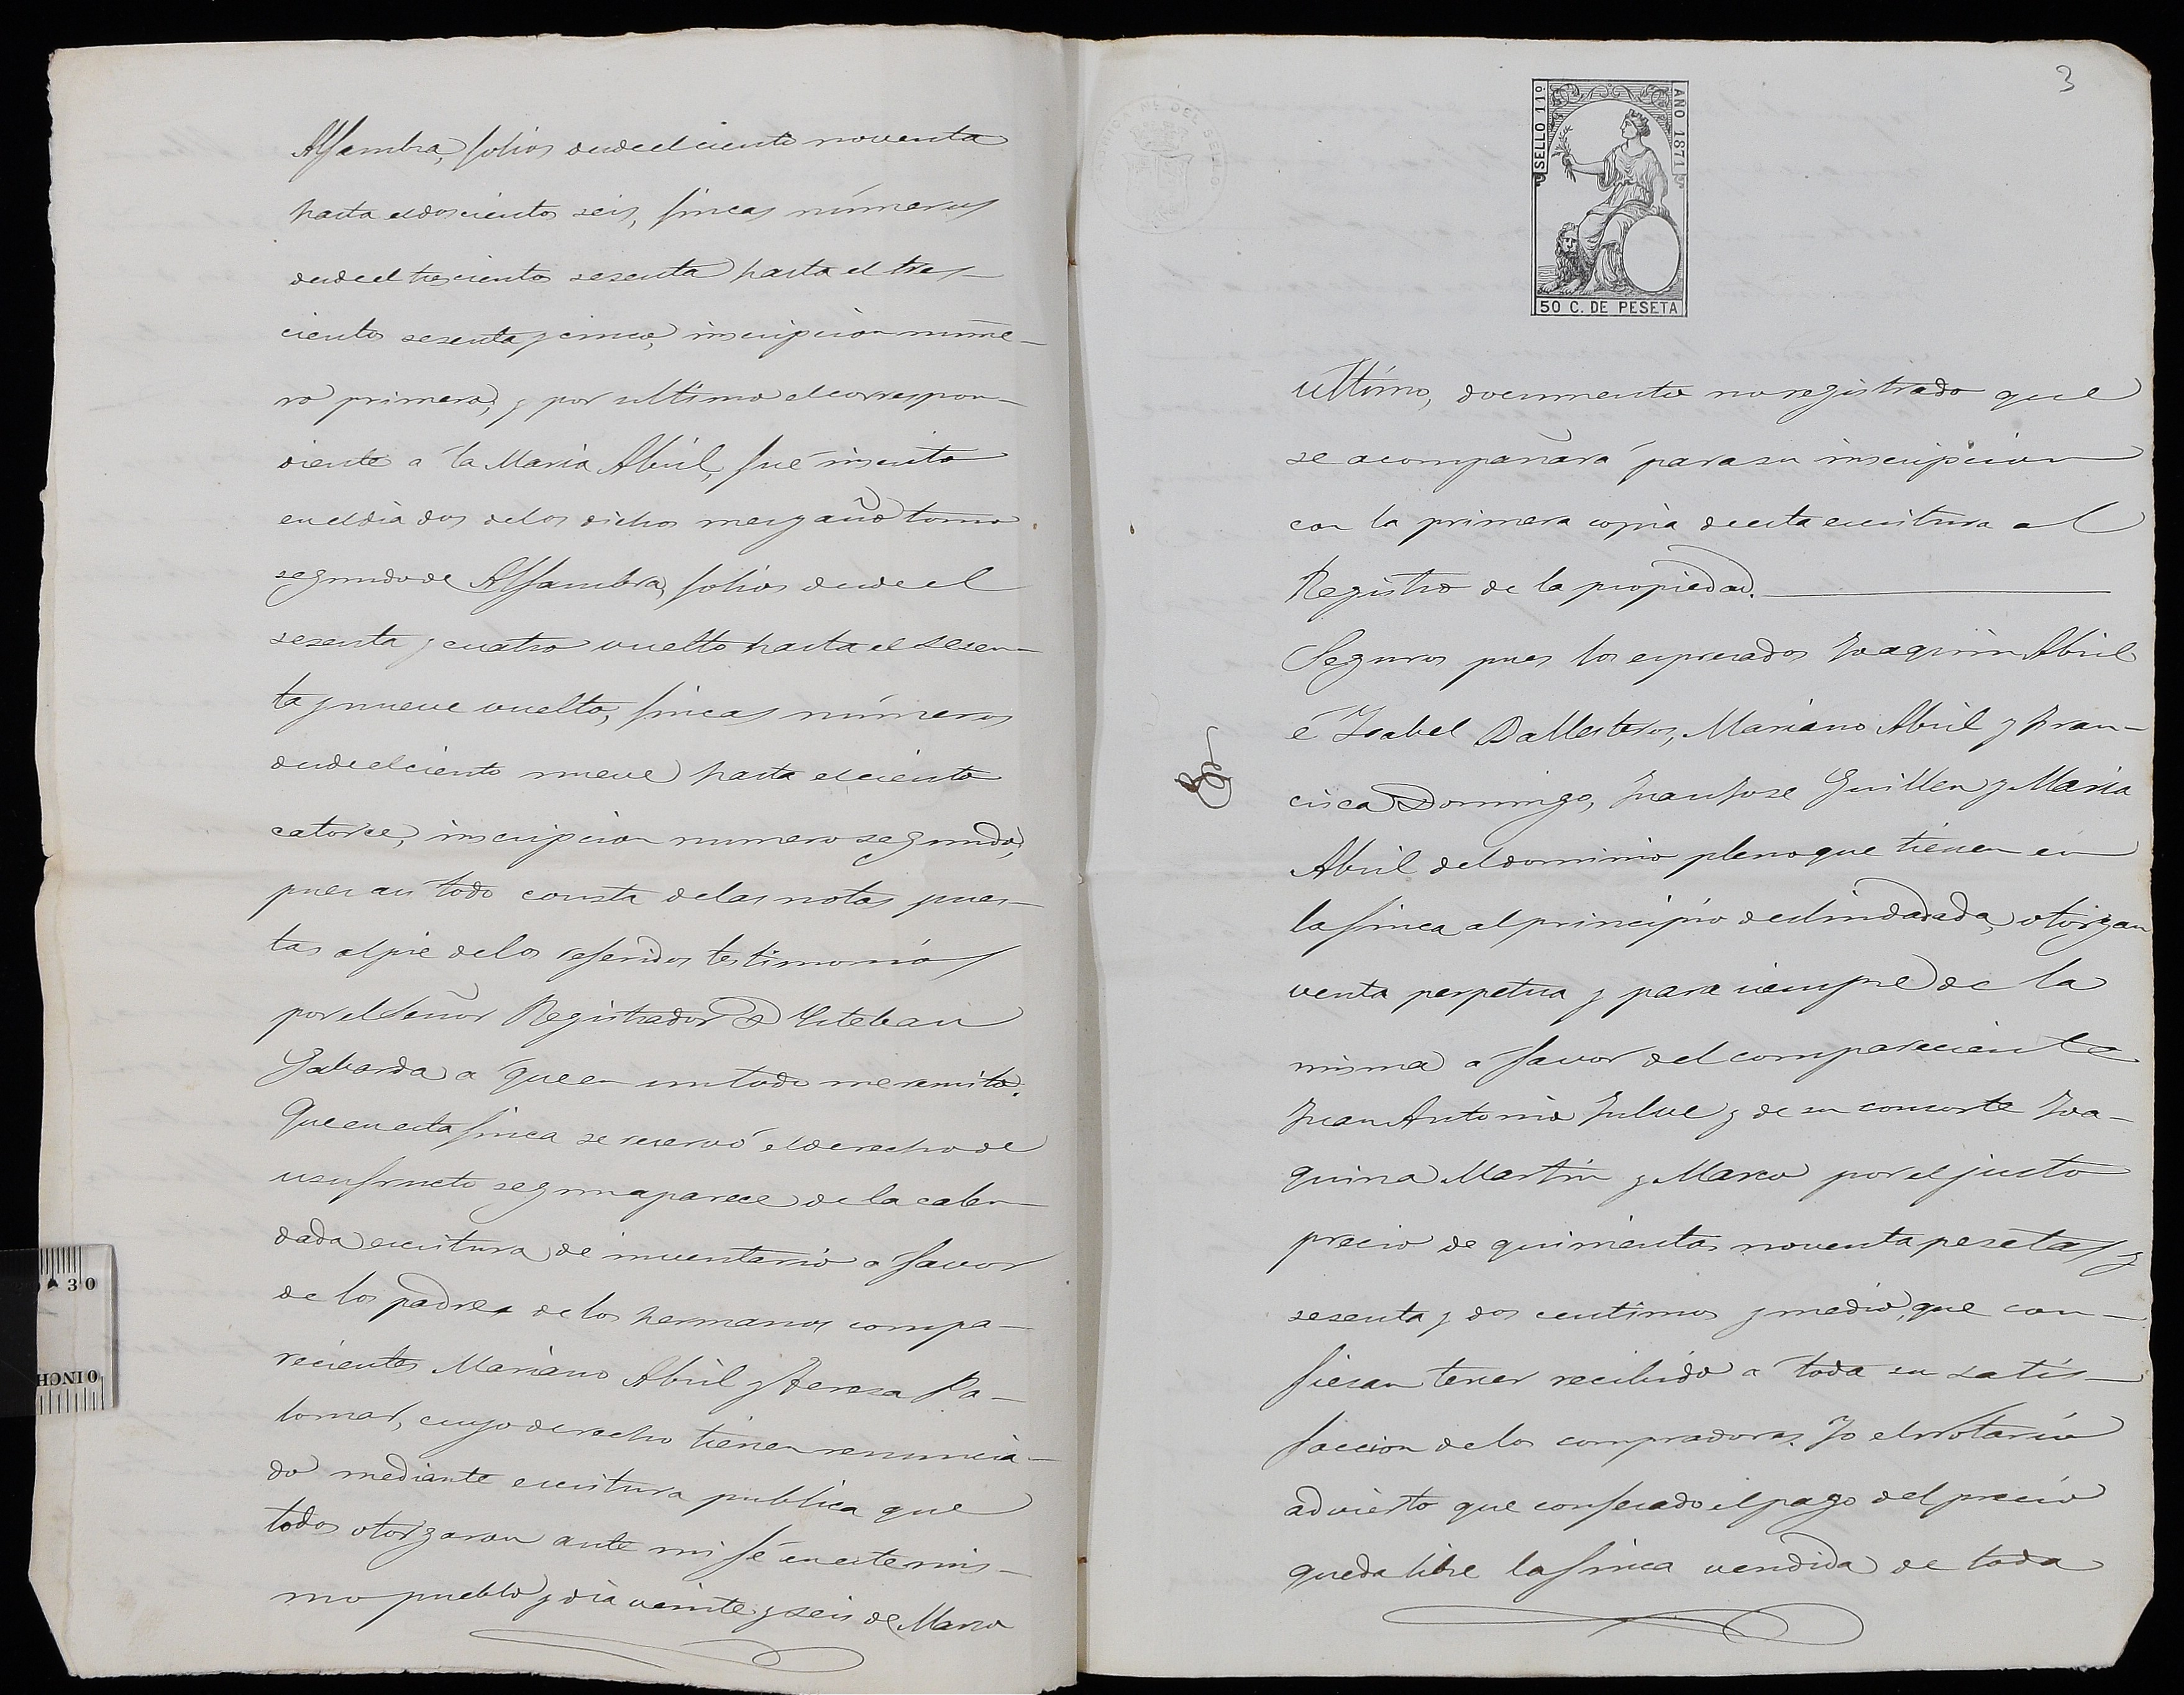 Alfambra, folios desde el ciento noventa
hasta el doscientos seis, fincas números
desde el trescientos sesenta hasta el tres-
cientos sesenta y cinco, inscripcion núme-
ro primero, y por ultimo el correspon-
diente a la Maria Abril, fué inscrito
en el dia dos de los dichos mes y año tomo
segundo de Alfambra, folios desde el
sesenta y cuatro vuelto hasta el sesen-
ta y nueve vuelto, fincas números
desde el ciento nueve hasta el ciento
catorce, inscripcion numero segundo,
pues asi todo consta de las notas pues-
tas al pie de los referidos testimonios
por el Señor Registrador D Esteban
Gabarda a que en un todo me remito.
Que en esta finca se reservó el derecho de
usufructo segun aparece de la calen-
dada escritura de inventario a favor
de los padres de los hermanos compa-
recientes Mariano Abril y Teresa Pa-
lomar, cuyo derecho tienen renuncia-
do mediante escritura publica que
todos otorgaron ante mi fé en este mis-
mo pueblo y dia veinte y seis de Marzo
3
SELLO 11º
AÑO 1871
50 C. DE PESETA
último, documento no registrado que
se acompañará para su inscripcion
con la primera copia de esta escritura al
Registro de la propiedad.
Seguros pues los expresados Joaquin Abril
é Isabel Ballesteros, Mariano Abril y Fran-
cisca Domingo, Juan Jose Guillen y Maria
Abril del dominio pleno que tienen en
la finca al principio deslindadada, otorgan
venta perpetua y para siempre de la
misma á favor del compareciente
Juan Antonio Julve y de su consorte Joa-
quina Martin y Marco por el justo
precio de quinientas noventa pesetas y
sesenta y dos centimos y medio, que con-
fiesan tener recibido a toda su satis-
faccion de los compradores. Yo el Notario
advierto que confesado el pago del precio
queda libre la finca vendida de toda